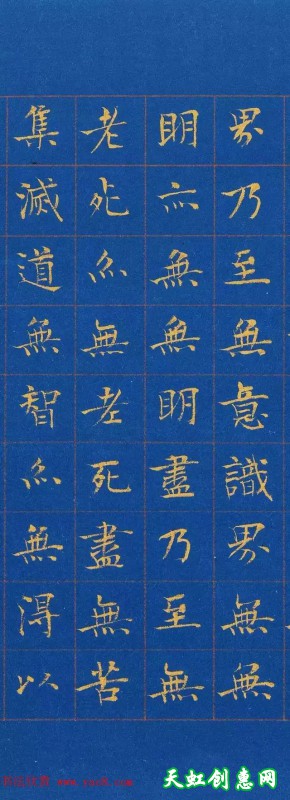 界乃至無意識界無無
明亦無無明盡乃至無
老死亦無老死盡無苦
集滅道無智亦無得以
天虹创惠网